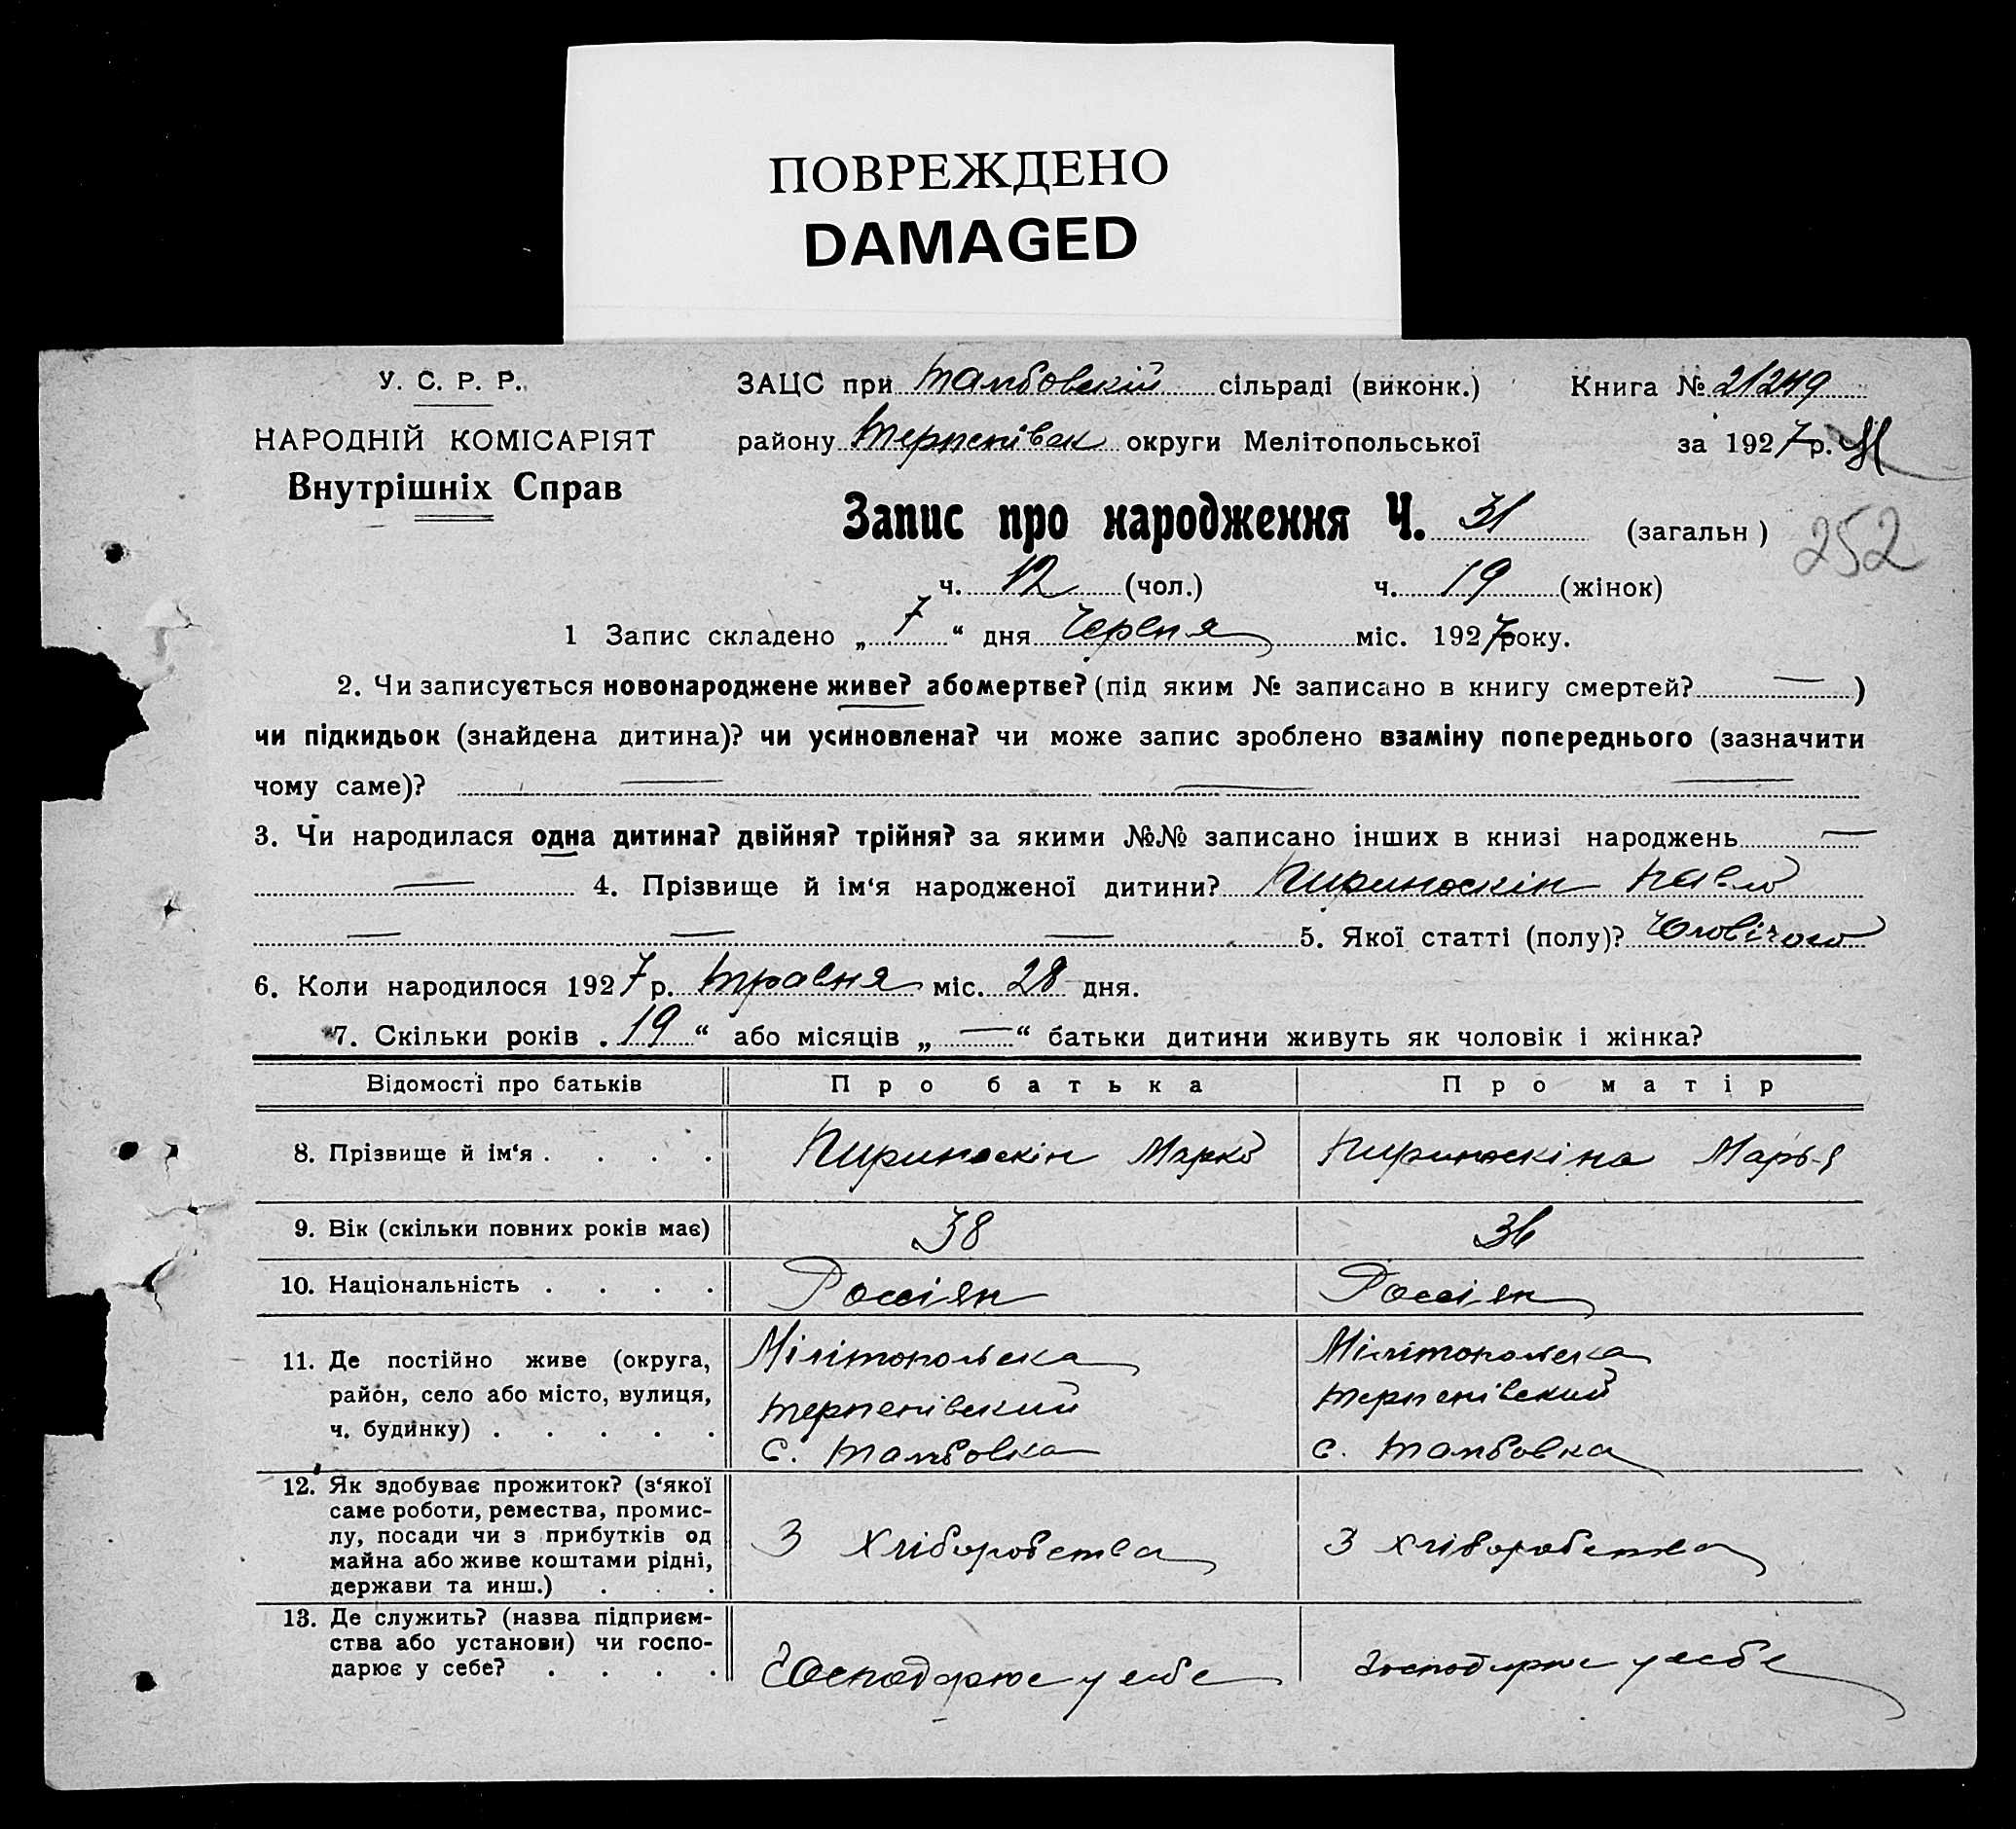 ПОВРЕЖДЕНО
DAMAGED
У. С. Р. Р.
НАРОДНІЙ КОМІСАРІЯТ
Внутрішніх Справ
ЗАЦС при Тамбовскій сільраді (виконк.) Книга № 21249
району Терпенівск округи Мелітопольської за 1927 р.
Запис про народження Ч. 31 (загальн)
252
ч. 12 (чол.) ч. 19 (жінок)
1 Запис складено „ 7 “ дня Червня міс. 1927 року.
2. Чи записується новонароджене живе? або мертве? (під яким № записано в книгу смертей? — )
чи підкидьок (знайдена дитина)? чи усиновлена? чи може запис зроблено взаміну попереднього (зазначити
чому саме)? — — —
3. Чи народилася одна дитина? двійня? трійня? за якими №№ записано інших в книзі народжень —
— 4. Прізвище й ім‘я народженої дитини? Павло
— — — 5. Якої статті (полу)? Чоловічого
6. Коли народилося 1927 р. травня міс. 28 дня.
7. Скільки років „ 19 “ або місяців „ — “ батьки дитини живуть як чоловік і жінка?
Відомості про батьків Про батька Про матір
8. Прізвище й ім‘я . . . . Марко Марья
9. Вік (скільки повних років має) 38 36
10. Національність . . . . Россіян Россіян
11. Де постійно живе (округа,
район, село або місто, вулиця,
ч. будинку) . . . . .
Мілітопольска
Терпенівский
с. Тамбовка
Мілітопольска
Терпенівский
с. Тамбовка
12. Як здобуває прожиток? (з‘якої
саме роботи, ремества, промис-
лу, посади чи з прибутків од
майна або живе коштами рідні,
держави та инш.) . . .
З хліборобства З хліборобства
13. Де служить? (назва підприєм-
ства або установи) чи госпо-
дарює у себе? . . . .
Господарює у себе господарює у себе